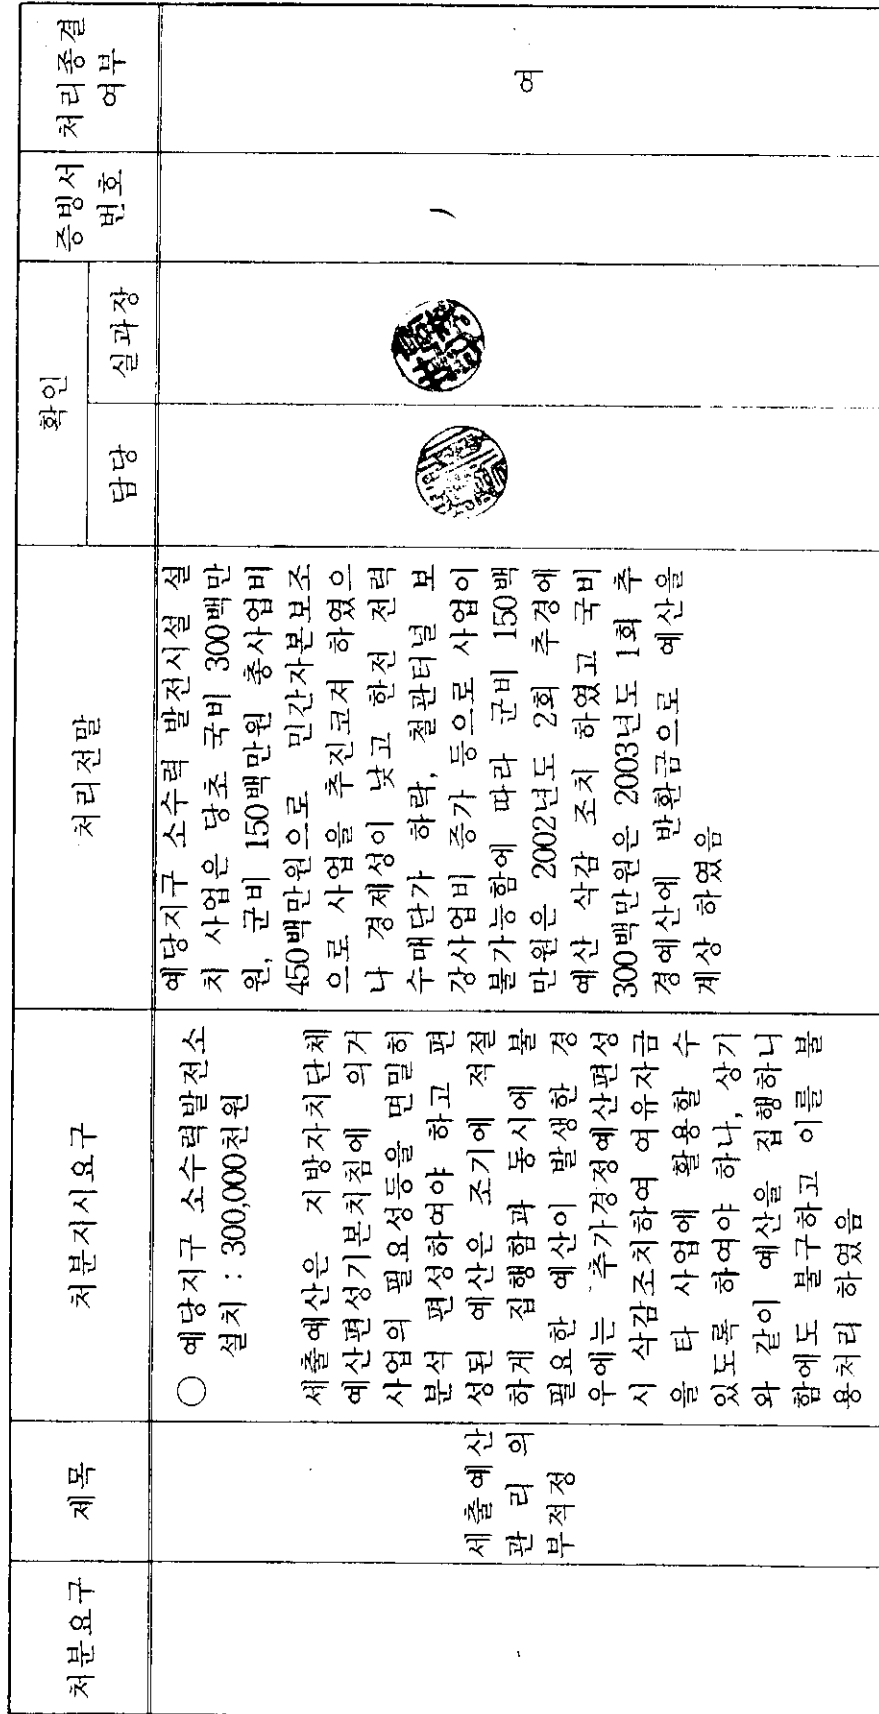 처분요구
제목
처분지시요구
처리전말
확인
담당
실과장
증빙서
번호
처리종결
여부
세출예산
관리의
부적정
○ 예당지구 소수력발전소
설치 : 300,000천원
세출예산은 지방자치단체
예산편성기본지침에 의거
사업의 필요성등을 면밀히
분석 편성하여야 하고 편
성된 예산은 조기에 적절
하게 집행함과 동시에 불
필요한 예산이 발생한 경
우에는 추가경정예산편성
시 삭감조치하여 여유자금
을 타 사업에 활용할 수
있도록 하여야 하나, 상기
와 같이 예산을 집행하니
함에도 불구하고 이를 불
용처리 하였음
예당지구 소수력 발전시설 설
치 사업은 당초 국비 300백만
원, 군비 150백만원 총사업비
450백만원으로 민간자본보조
으로 사업을 추진코저 하였으
나 경제성이 낮고 한전 전력
수매단가 하락, 철관터널 보
강사업비 증가 등으로 사업이
불가능함에 따라 군비 150백
만원은 2002년도 2회 추경에
예산 삭감 조치 하였고 국비
300백만원은 2003년도 1회 추
경예산에 반환금으로 예산을
계상 하였음
여